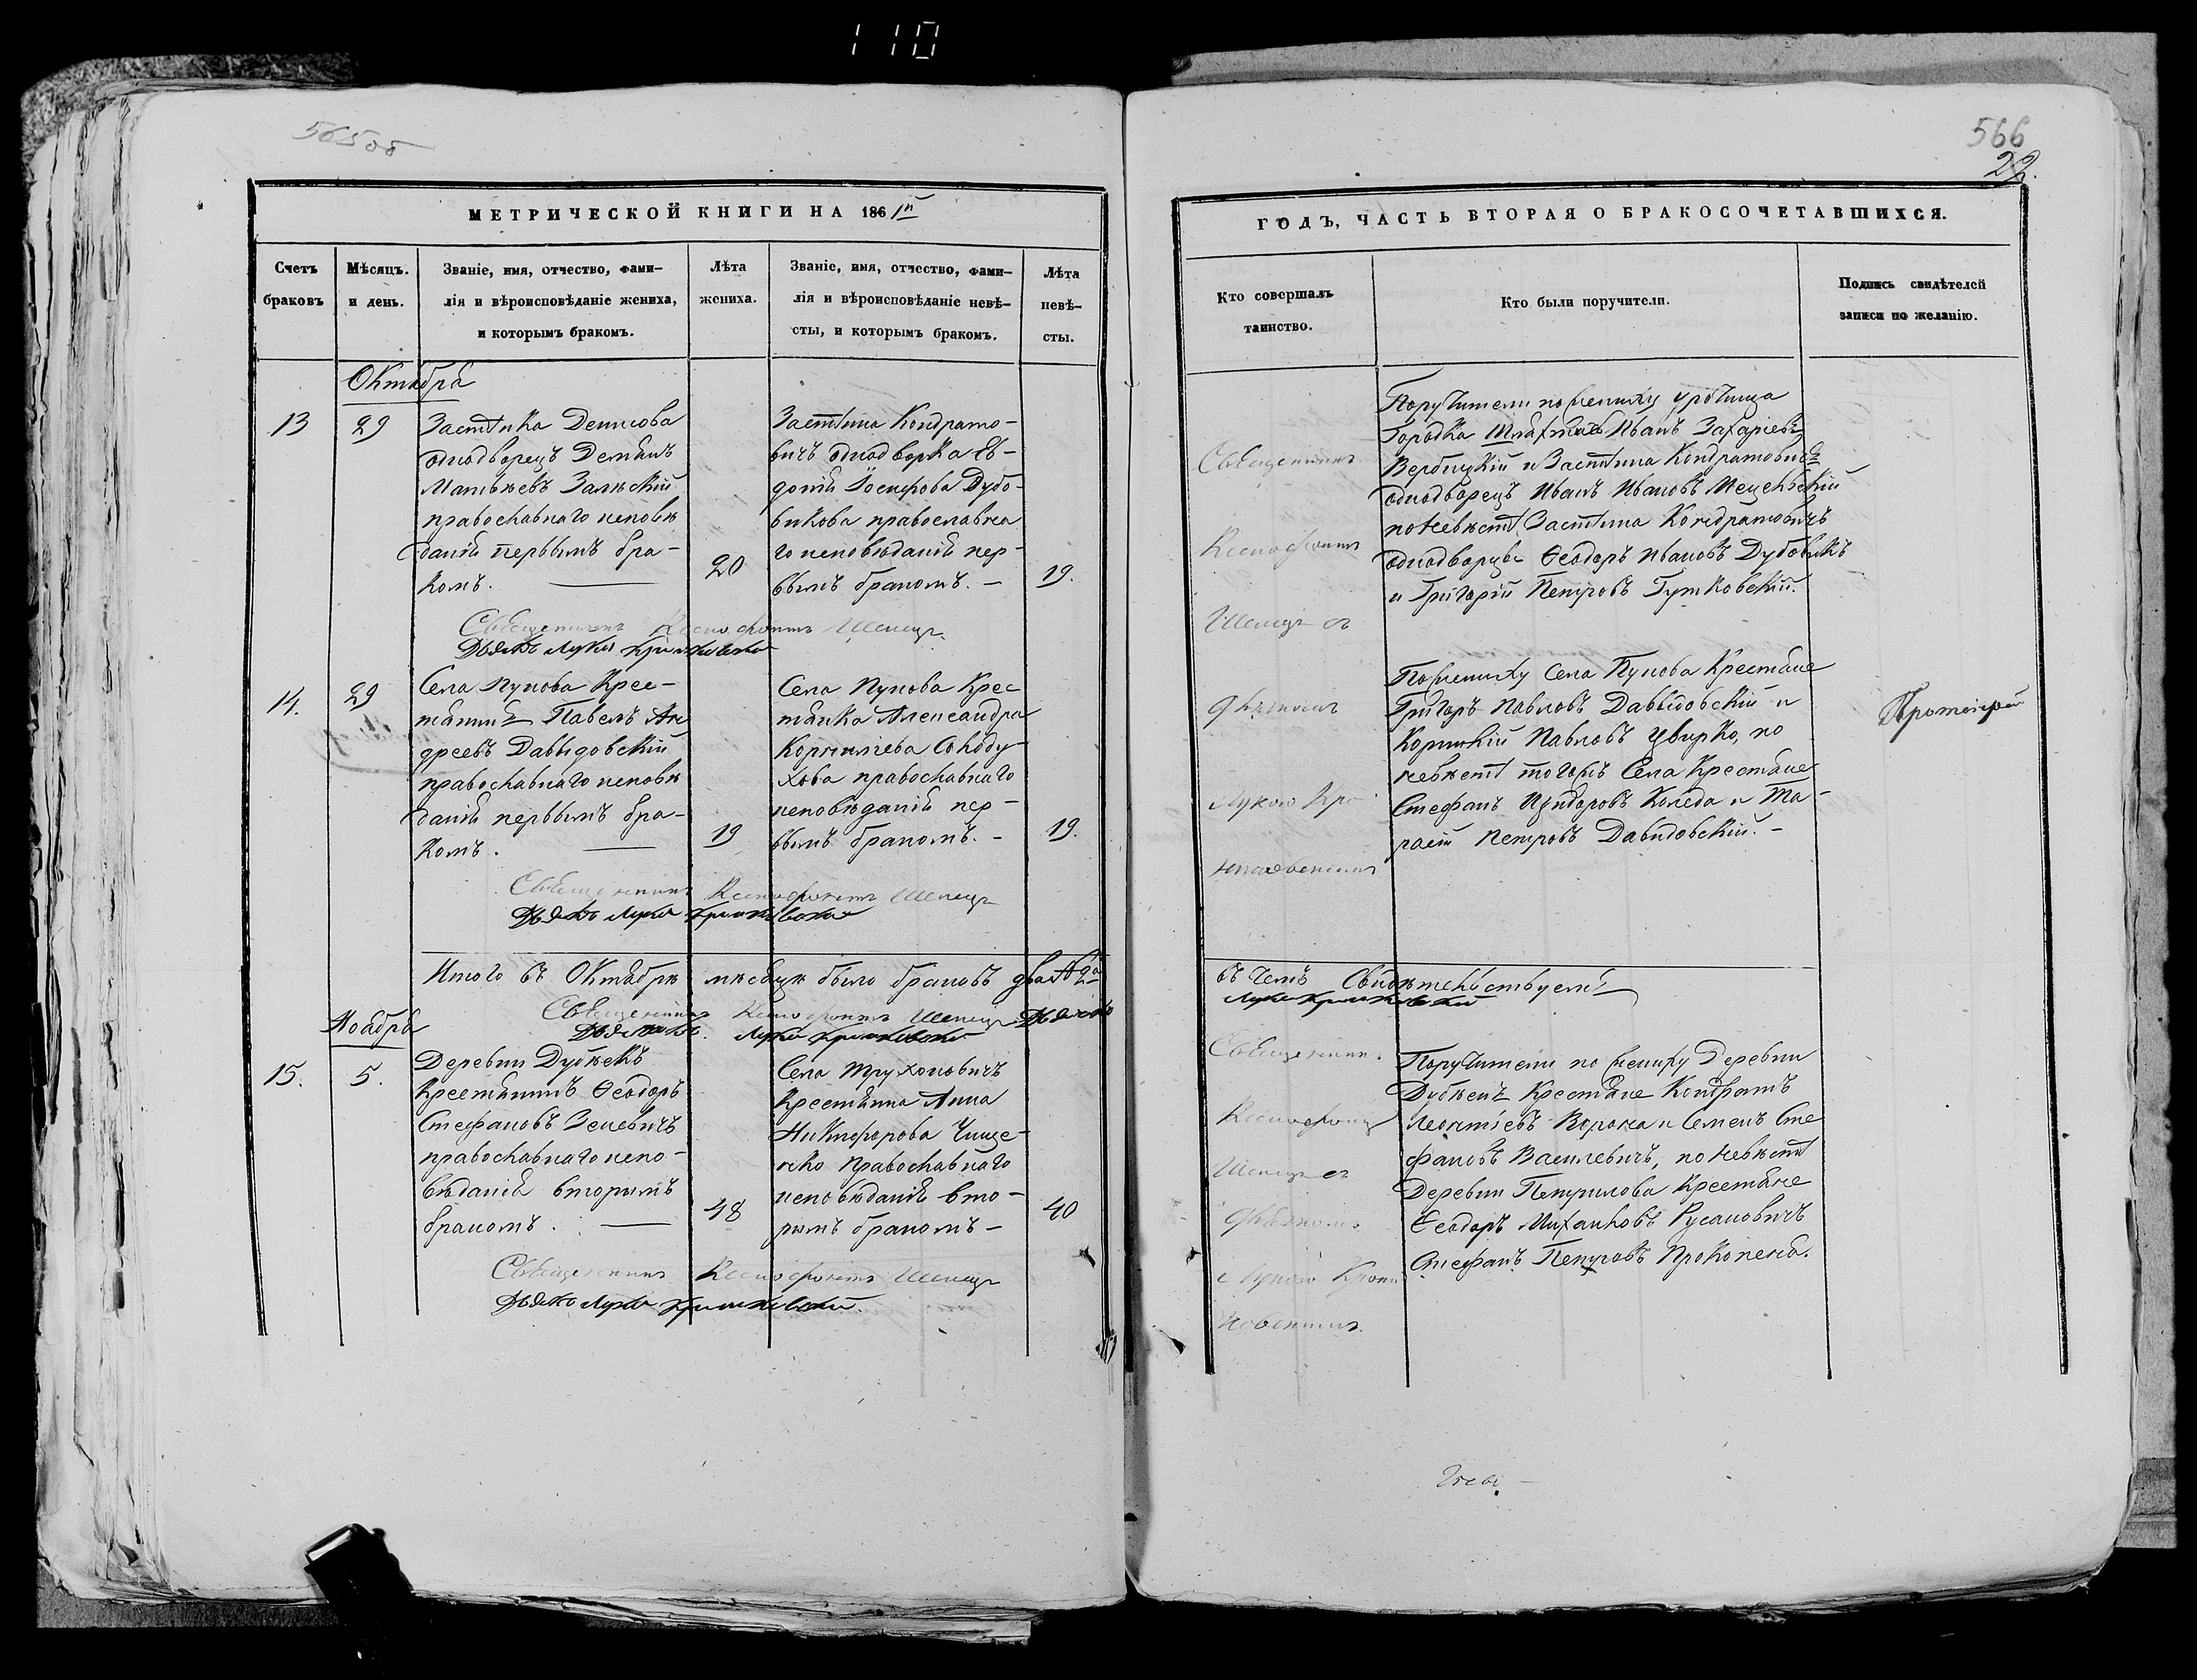 110
565 об
МЕТРИЧЕСКОЙ КНИГИ НА 1861й
Счетъ браковъ
Мѣсяцъ. и день.
Званіе, имя, отчество, фами-
лія и вѣроисповѣданіе жениха,
и которымъ бракомъ.
Лѣта жениха.
Званіе, имя, отчество, фами-
лія и вѣроисповѣданіе невѣ-
сты, и которымъ бракомъ.
Лѣта невѣ-
сты.
Октября
13
29
Застѣнка Демидова
однодворецъ Демьянъ
Матвѣевъ Залѣскій
православнаго исповѣ
данія первымъ бра-
комъ.
20
Застѣнка Кондрато-
вичъ однодворка Ев-
докія Іосифова Дубо-
викова православна
го исповѣданія пер-
вымъ бракомъ. -
19.
Священникъ Ксенофонтъ Шепецъ
Дьякъ Лука
14.
29
Села Пукова Крес-
тьянинъ Павелъ Ан
дреевъ Давыдовскій
православнаго исповѣ
данія первымъ бра-
комъ.
19
Села Пукова Крес
тьянка Александра
Корнилева Сокоду-
хова православнаго
исповѣданія пер-
вымъ бракомъ. -
19.
Священникъ Ксенофонтъ Шепецъ
Дьякъ Лука
Итого въ Октябрѣ мѣсяцѣ было браковъ два
Священникъ Ксенофонтъ Шепецъ
Ноябрь
15.
5.
Деревни Дубнекъ
Крестьянинъ Ѳеодоръ
Стефановъ Зеневичъ
православнаго испо-
вѣданія вторымъ
бракомъ.
48
Села Трухоновичъ
Крестьянка Анна
Никифорова Чище-
нко Православнаго
исповѣданія вто-
рымъ бракомъ -
40
Священникъ Ксенофонтъ Шепецъ
Дьякъ Лука
566
22.
ГОДЪ, ЧАСТЬ ВТОРАЯ О БРАКОСОЧЕТАВШИХСЯ.
Кто совершалъ
таинство.
Кто были поручители.
Подпись свидѣтелей
записи по желанію.
Священникъ
Ксенофонтъ
Шепецъ съ
дьякомъ
Лукою
Поручители по жениху урочища
Городка Шляхтичъ Иванъ Захаріевъ
Вербицкій и Застѣнка Кондратовичъ
однодворецъ Иванъ Ивановъ
по невѣстѣ Застѣнка Кондратовичъ
однодворцы Ѳеодоръ Ивановъ Дубовикъ
и Григорій Петровъ Гутковскій.
По жениху Села Пукова Крестьяне
Григоръ Павловъ Давыдовскій и
Корнилій Павловъ Цвирко, по
невѣстѣ тогожъ Села Крестьяне
Стефанъ Изидоровъ Коляда и Та-
расій Петровъ Давидовскій. -
Протоіерей
въ чемъ Свидѣтельствуемъ
Священник.
Ксенофонтъ
Шепецъ съ
дьякомъ
Лукою
Поручители по жениху Деревни
Дубнекъ Крестьяне Кондратъ
Леонтіевъ Ворона и Семенъ Сте
фановъ Василевичъ, по невѣстѣ
Деревни Петрилова Крестьяне
Ѳеодоръ Михайловъ Русановичъ
Стефанъ Петровъ Прокопеня.